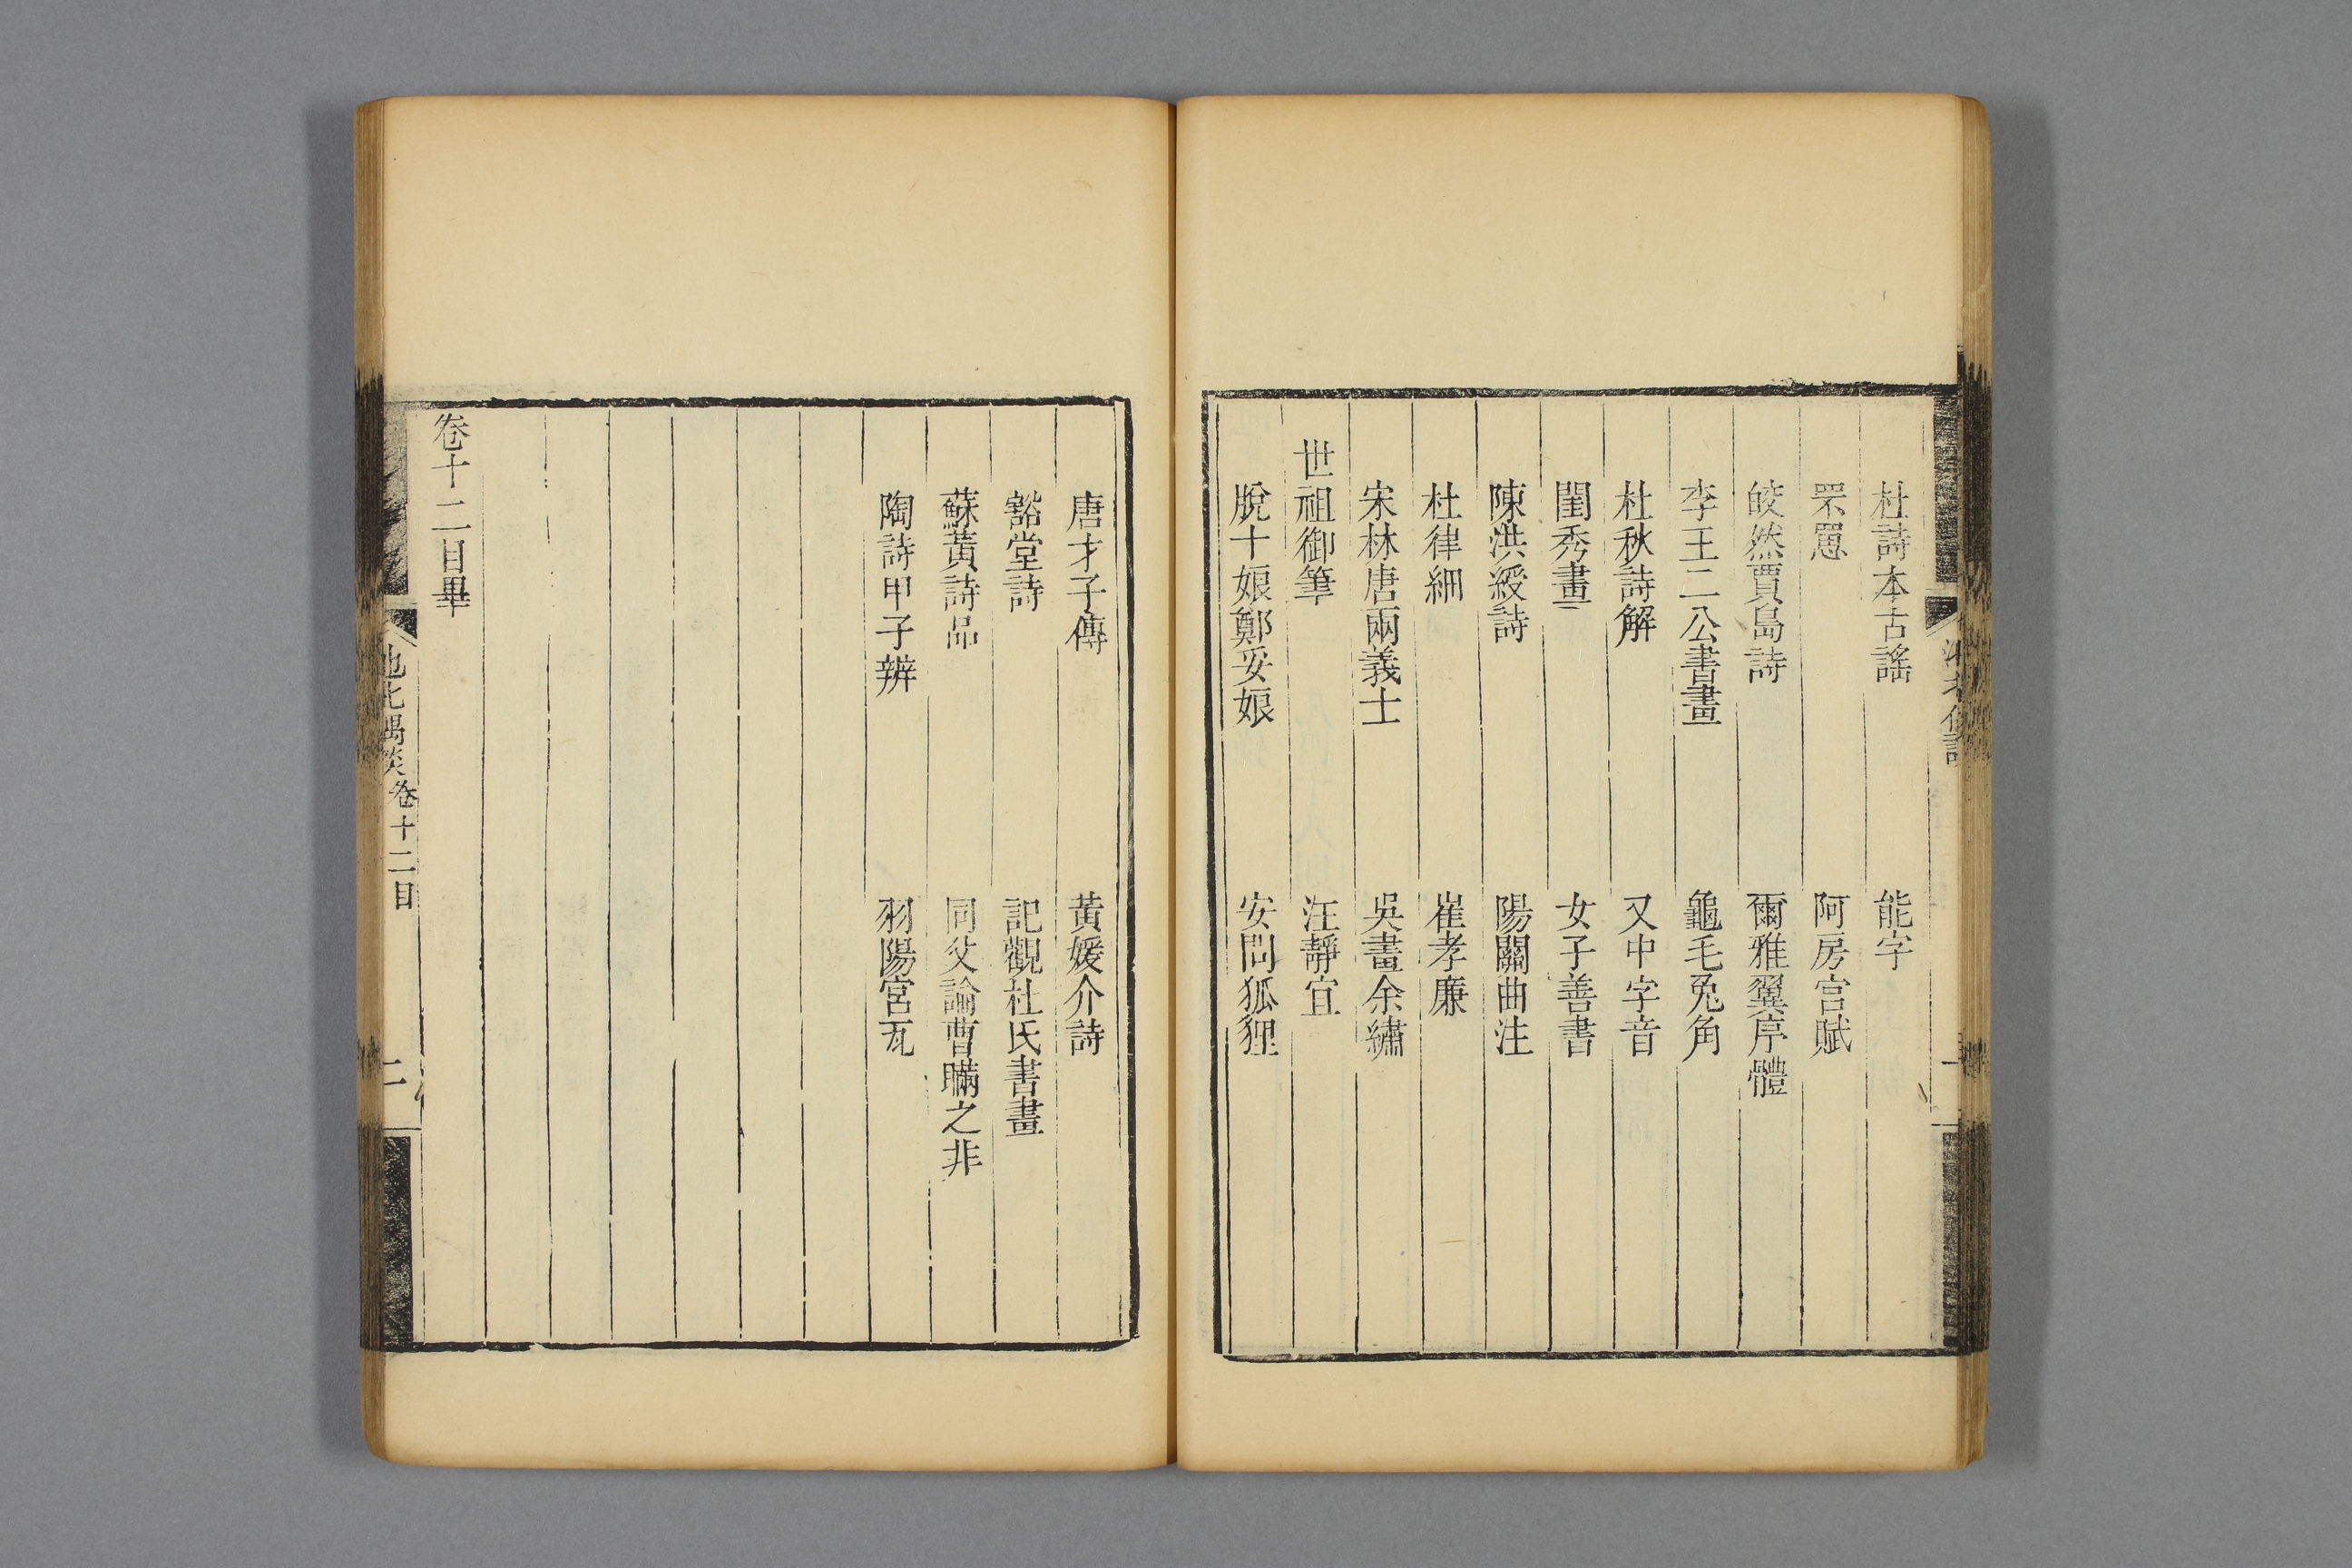 杜詩本古謠　能字
罘罳　阿房宮賦
皎然賈島詩　爾雅翼序體
李王二公書畫　龜毛兔角
杜秋詩解　又中字音
閨秀畫　女子善書
陳洪綬詩　陽關曲注
杜律細　崔孝廉
宋林唐兩義士　吳畫余繡
世祖御筆　汪靜宜
脫十娘鄭妥娘　安問狐狸
唐才子傳　黃媛介詩
谿堂詩　記觀杜氏書畫
蘇黃詩品　同父論曹瞞之非
陶詩甲子辨　羽陽宮瓦
卷十二目畢
池北偶談卷十二目　二